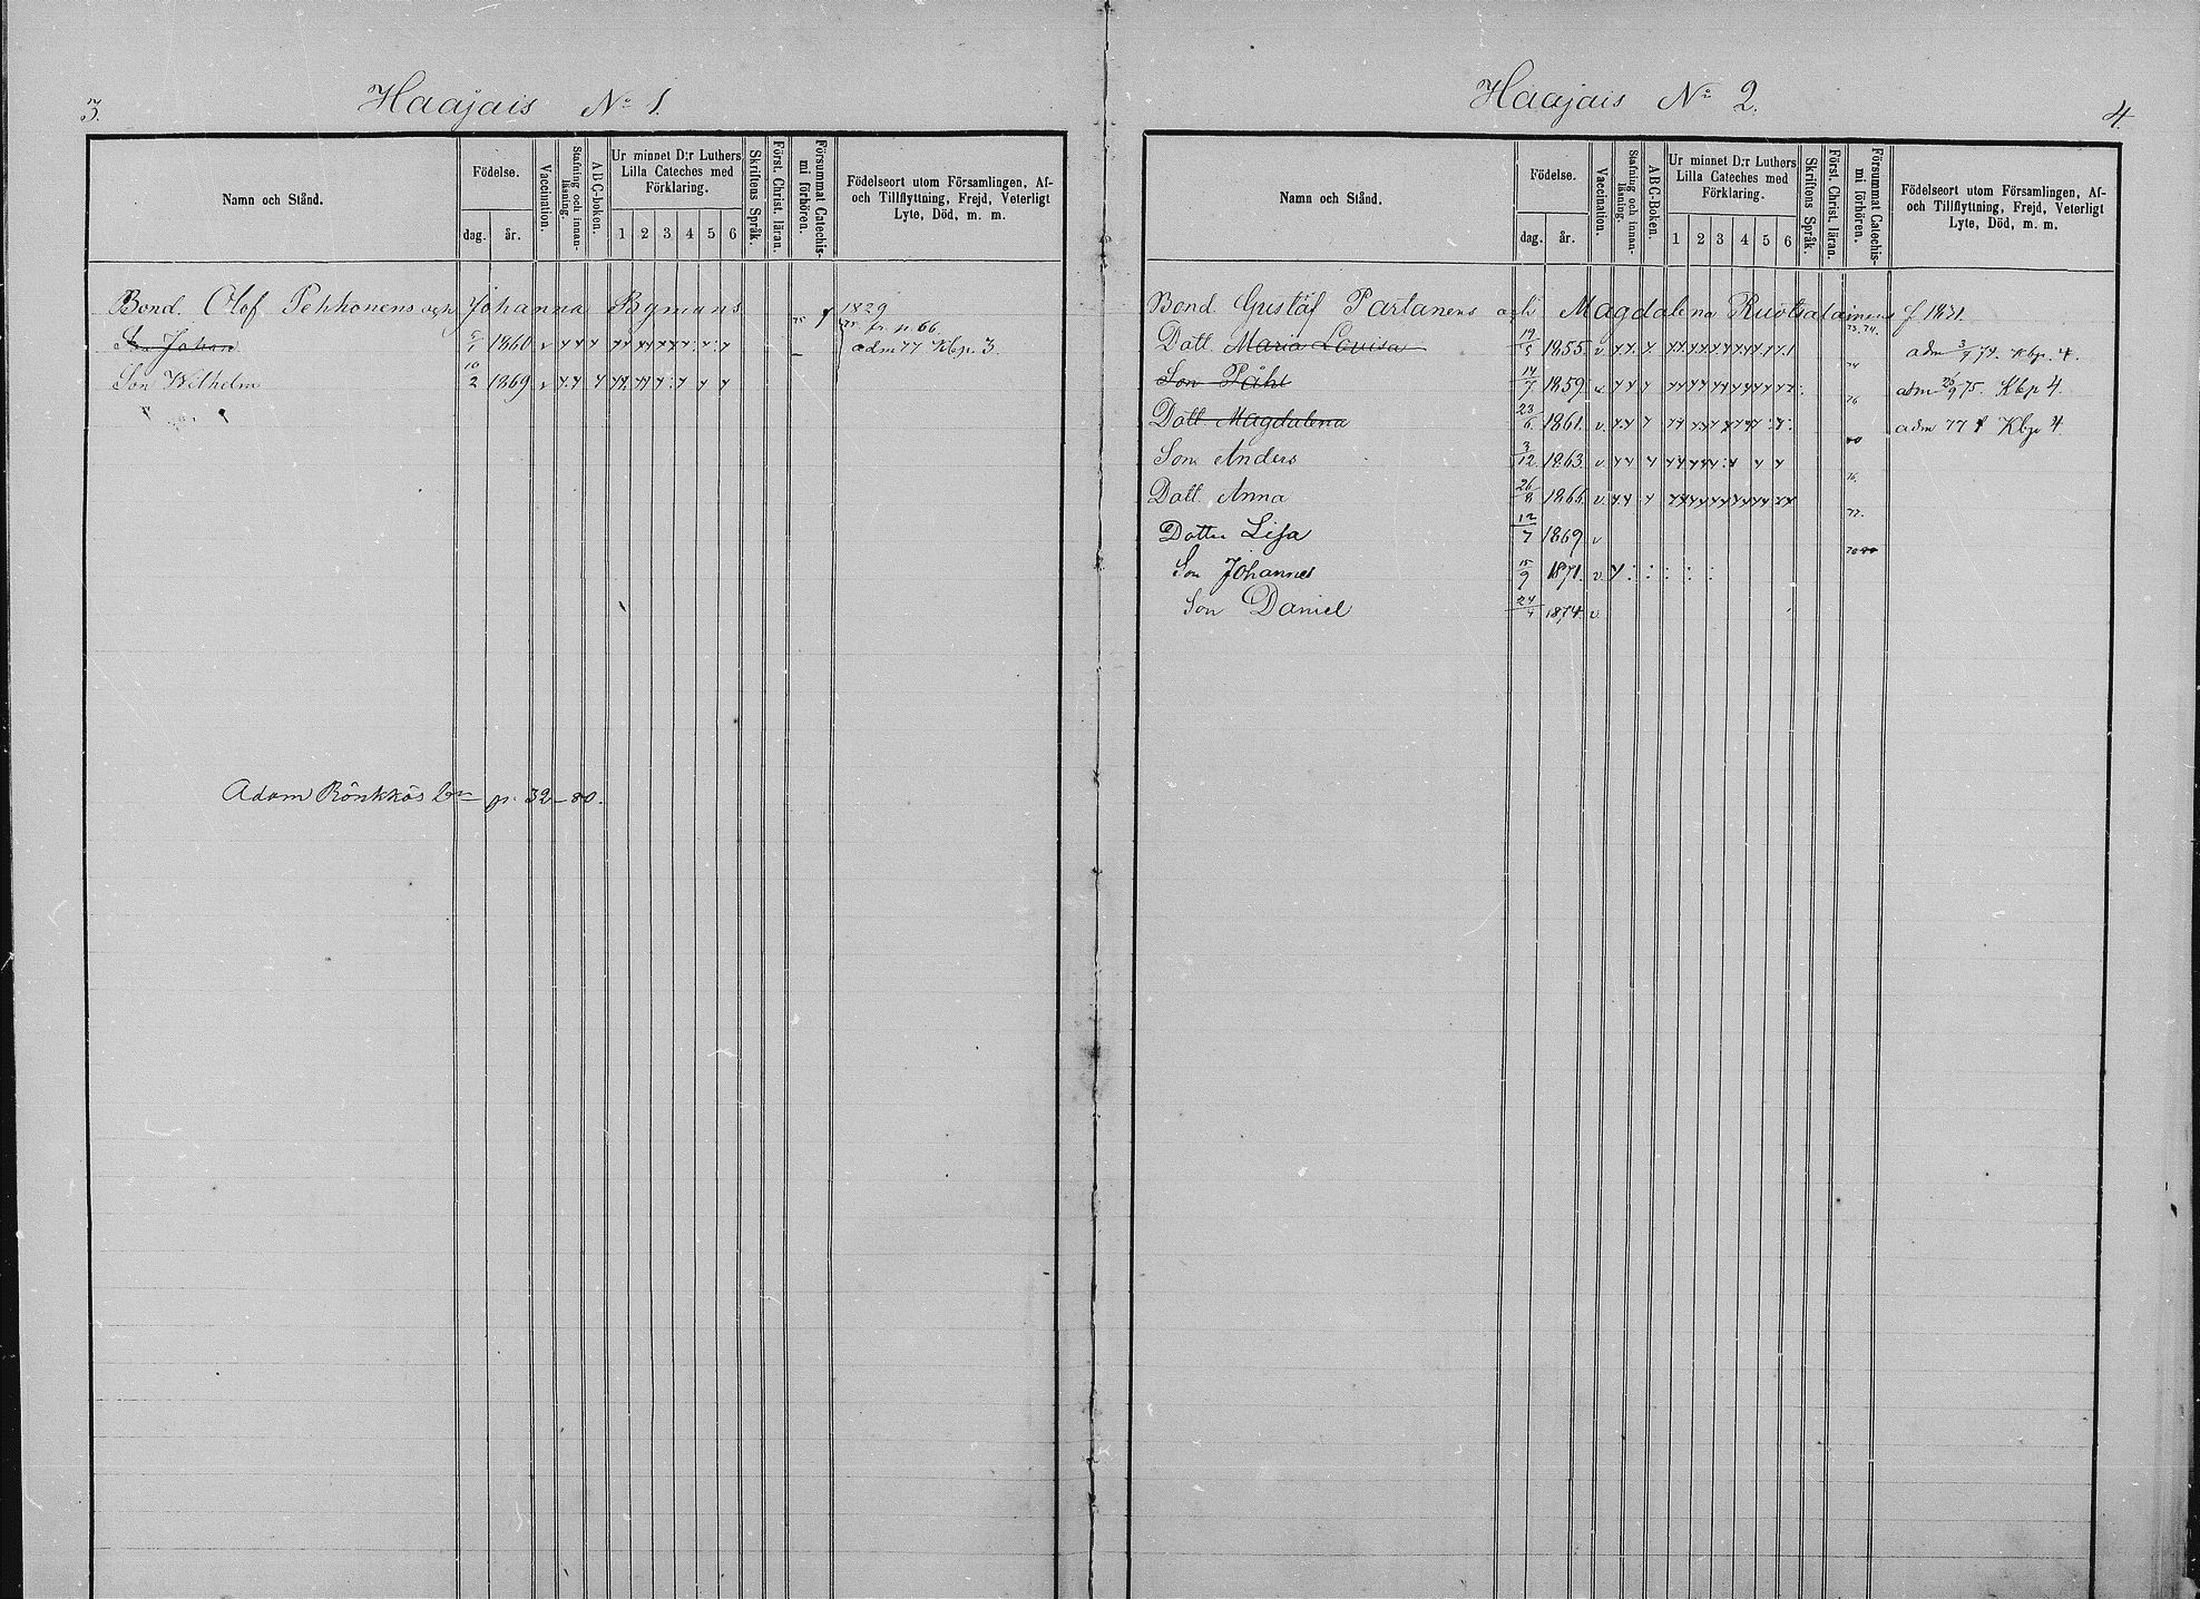 3.
Haajais No 1.
Namn och Stånd.
Födelse.
dag.
år.
Vaccination.
Stafning och innanläsning.
ABC-boken.
Ur minnet D:r Luthers
Lilla Cateches med
Förklaring.
1 2 3 4 5 6
Skriftens Språk.
Först. Christ. läran.
Försummat Catechis-
mi förhören.
Födelseort utom Församlingen, Af-
och Tillflyttning, Frejd, Veterligt
Lyte, Död, m. m.
Bond. Olof Pehkonens och Johanna Bymans 1829
fr p 66.
Son Johan 1860 v adm 77 Kbp. 3.
Son Wilhelm 10/2 1869 v
Adam Rönkkös p. 32-80.
Haajais No 2.
4.
Namn och Stånd.
Födelse.
dag.
år.
Vaccination.
Stafning och innan-
läsning.
ABC-Boken.
Ur minnet D:r Luthers
Lilla Cateches med
Förklaring.
1 2 3 4 5 6
Skriftens Språk.
Först. Christ. läran.
Försummat Catechis-
mi förhören.
Födelseort utom Församlingen, Af-
och Tillflyttning, Frejd, Veterligt
Lyte, Död, m. m.
Bond. Gustaf Partanens och Magdalena Ruotsalainens f 1831.
73. 74.
Dott. Maria Lovisa 19/5 1855. v. adm 3/7 74. Kbp. 4.
Son Påhl 14/7 1859. v adm 9 75. Kbp 4.
76
Dott. Magdalena 23/6 1861. v. adm 77 Kbp 4.
80
Son Anders 3/12 1863. v.
76.
Dott. Anna 26/8 1866. v.
77.
Dotter Lisa 12/7 1869 v
Son Johannes 15/9 1871. v.
Son Daniel 24/4 1874. v.